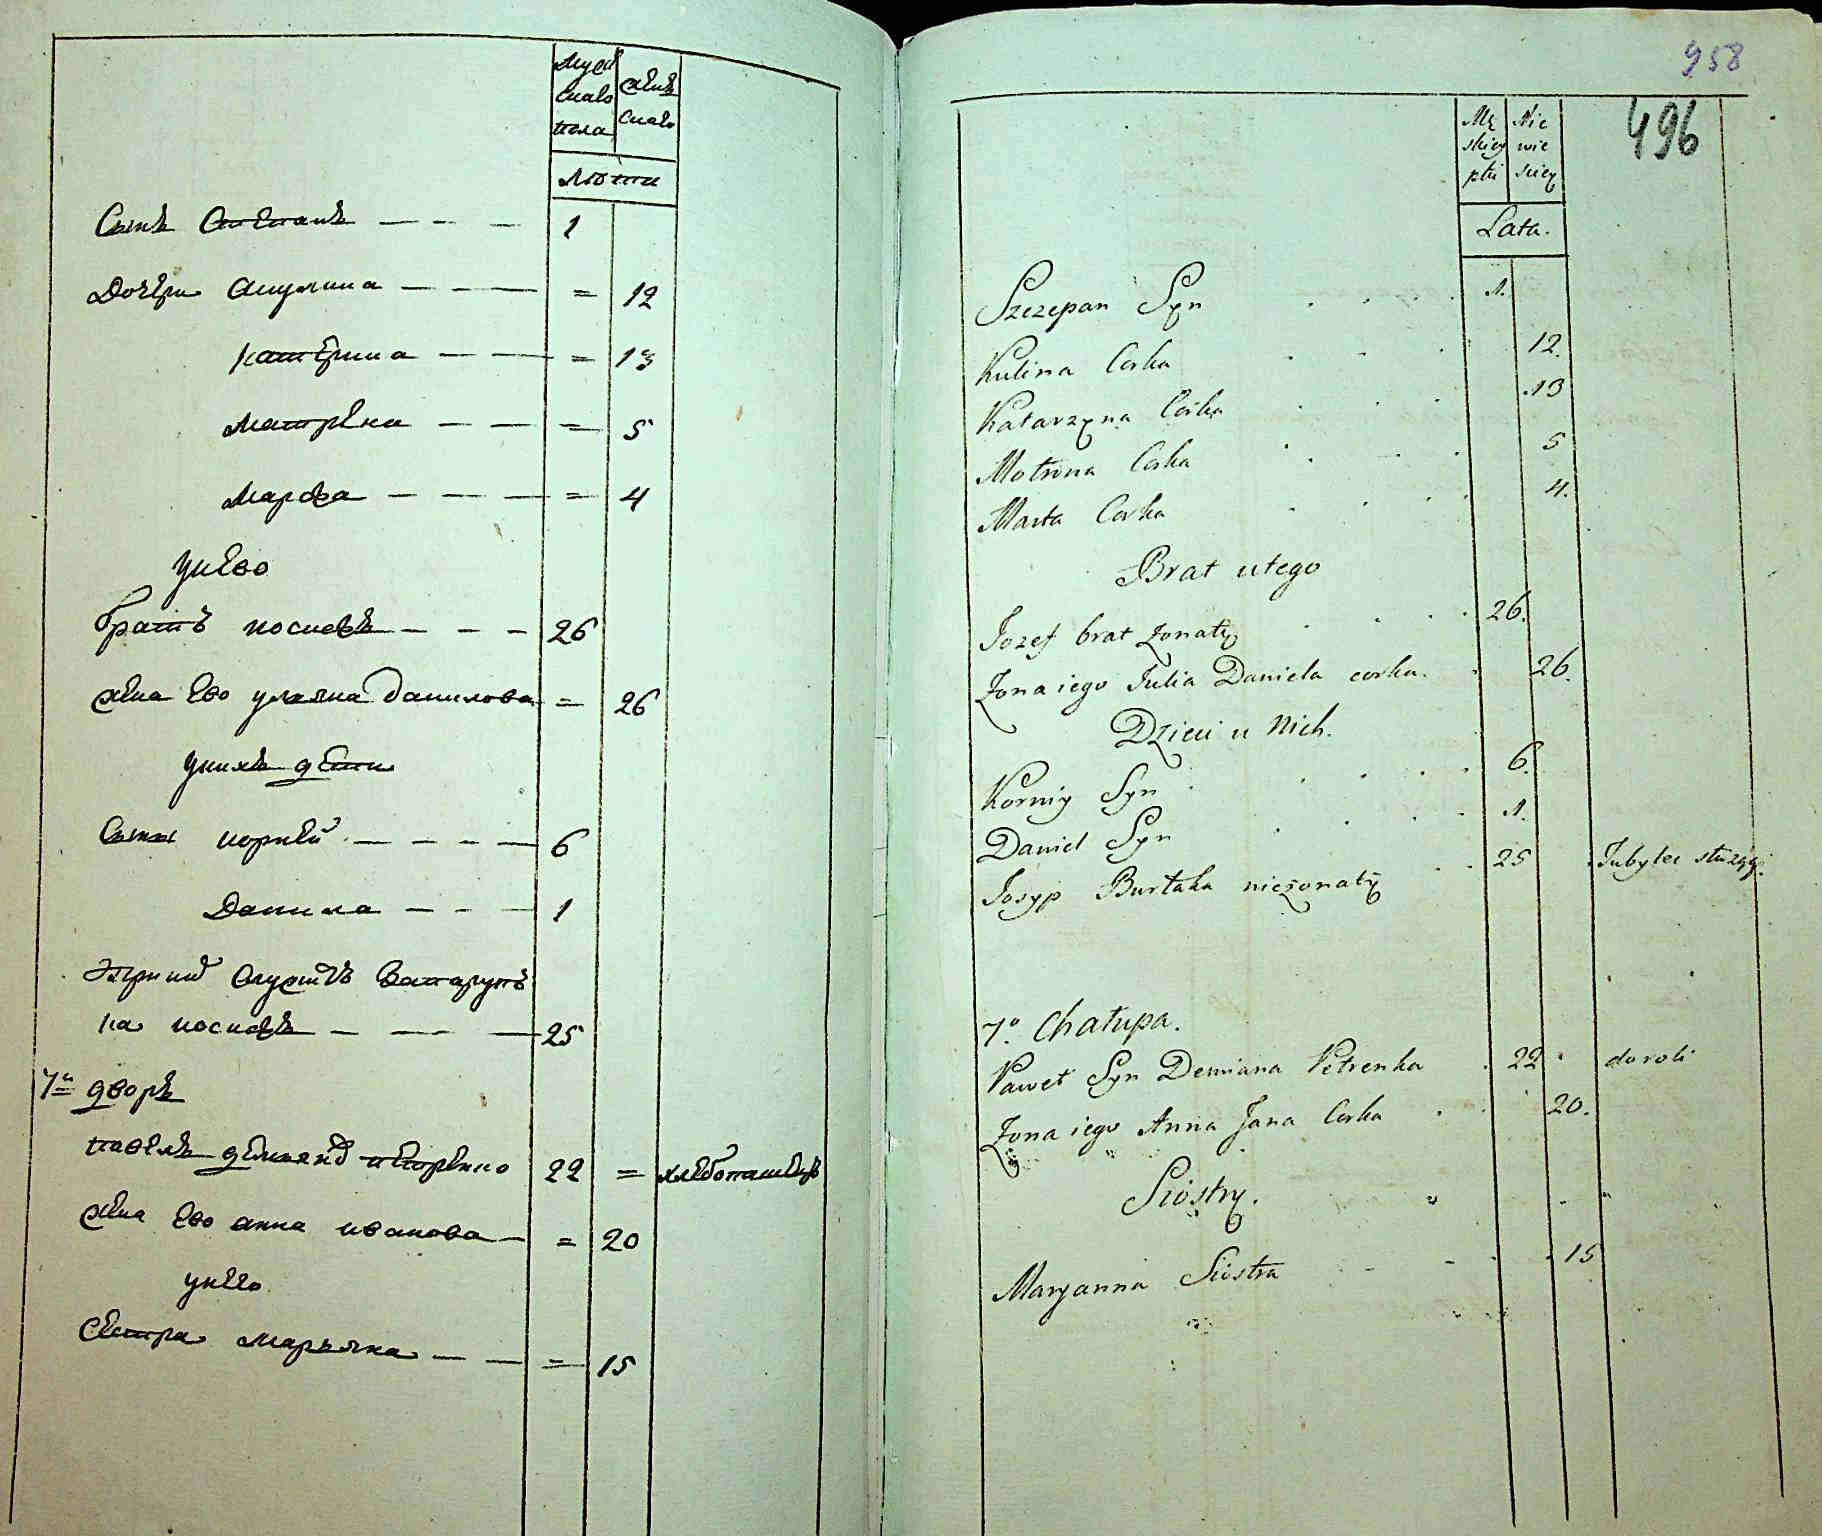 Муж
скаго
пола
женъ
скаго
лѣты
Сынъ Степанъ 1
Дочери Акулина = 12
Катерина = 13
Матрена = 5
Марфа = 4
у него
братъ иосифъ 26
жена Его улияна данилова = 26
у нихъ дети
Сыны корней 6
Данила 1
на иосифъ 25
7й дворъ
павелъ петренко 22 =
жена Его анна иванова = 20
у него
сестра марьяна = 15
958
496
Mę
skiey
płci
Nie
wie
sciey
Lata.
Szczepan Syn 1.
Kulina Corka 12.
Katarzyna Corka 13
Motrona Corka 5
Marta Corka 4.
Brat u tego
Jozef brat żonaty 26.
Żona iego Julia Daniela corka. 26.
Dzieci u Nich.
Korniy Syn 6.
Daniel Syn 1.
Josyp Burłaka nieżonaty 25
7o. Chałupa.
Paweł Syn Demiana Petrenka 22 do roli
Żona iego Anna Jana Corka 20.
Siostry.
Maryanna Siostra 15